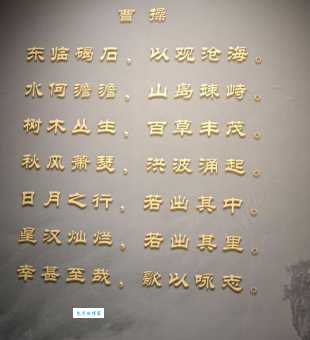 曹操
东临碣石，以观沧海。
水何澹澹，山岛竦峙。
树木丛生，百草丰茂。
秋风萧瑟，洪波涌起。
日月之行，若出其中。
星汉灿烂，若出其里。
幸甚至哉，歌以咏志。